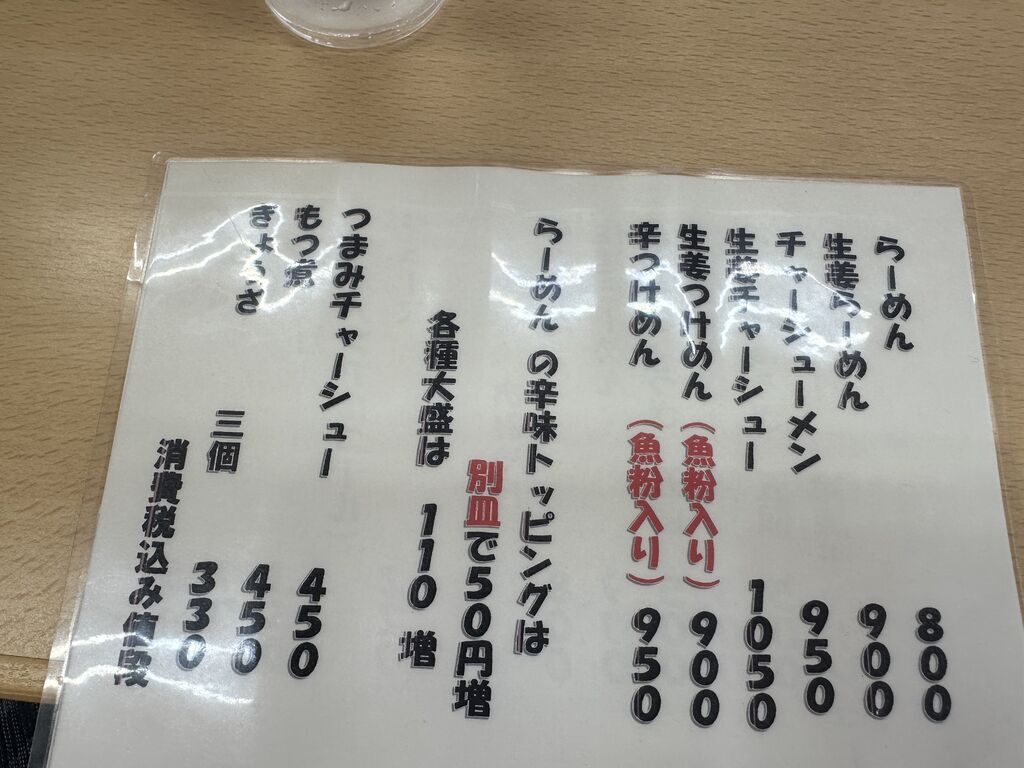 らーめん 800
生姜らーめん 900
チャーシューメン 950
生姜チャーシュー 1050
生姜つけめん (魚粉入り) 900
辛つけめん (魚粉入り) 950
らーめん の辛味トッピングは
別皿で50円増
各種大盛は 110 増
つまみチャーシュー 450
もつ煮 450
ぎょうざ 三個 330
消費税込み値段